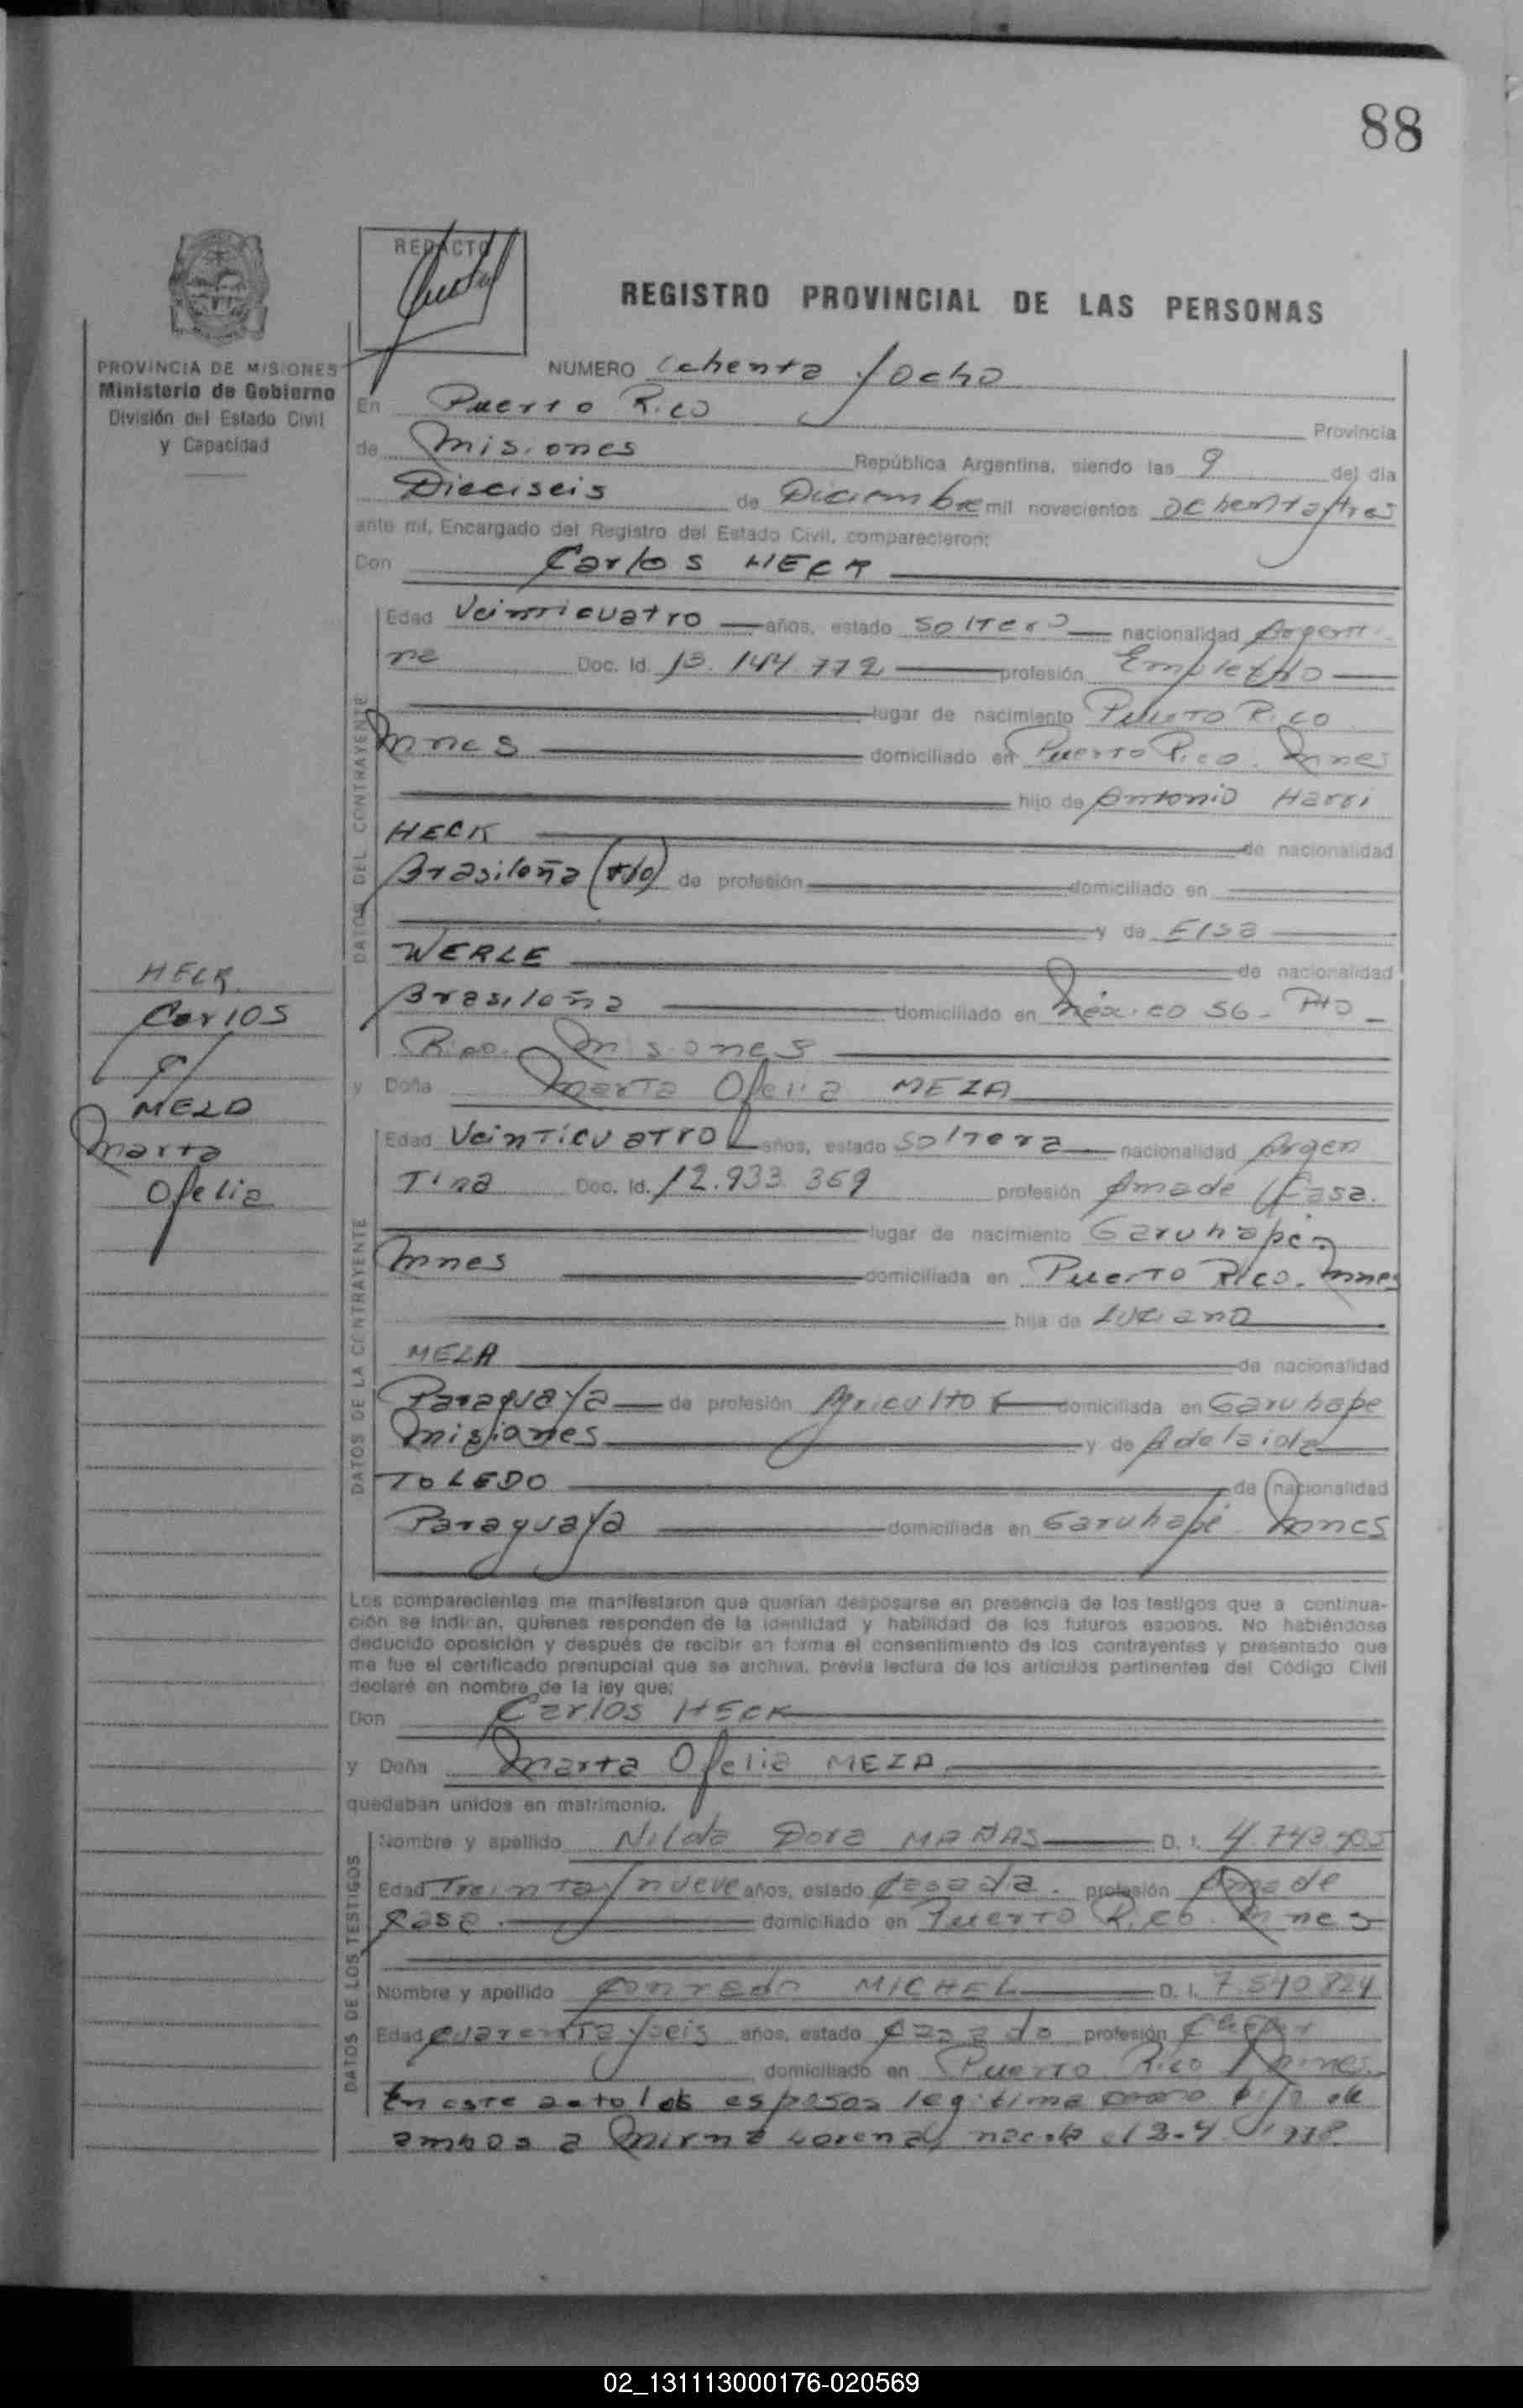 88
REDACTO
REGISTRO PROVINCIAL DE LAS PERSONAS
PROVINCIA DE MISIONES
Ministerio de Gobierno
División del Estado Civil
y Capacidad
NUMERO Ochenta y Ocho
En Puerto Rico Provincia
de Misiones República Argentina, siendo las 9 del día
Dieciseis de Diciembre mil novecientos Ochenta y tres
ante mí, Encargado del Registro del Estado Civil, comparecieron:
Don Carlos HECK
DATOS DEL CONTRAYENTE
Edad Veinticuatro años, estado Soltero nacionalidad Argenti
na Doc. Id. 13.144.772 profesión Empleado
lugar de nacimiento Puerto Rico
Mnes domiciliado en Puerto Rico. Mnes
hijo de Antonio Harri
HECK de nacionalidad
Brasileña de profesión domiciliado en
y de Elsa
WERLE de nacionalidad
Brasileña domiciliado en México 56 - Pto
Rico. Misiones
y Doña Marta Ofelia MEZA
HECK
Carlos
c/
MEZA
Marta
Ofelia
DATOS DE LA CONTRAYENTE
Edad Veinticuatro años, estado Soltera nacionalidad Argen
Tina Doc. Id. 12.933.369 profesión Ama de Casa.
lugar de nacimiento Garuhapé
Mnes domiciliada en Puerto Rico. Mnes
hija de Luciano
MEZA de nacionalidad
Paraguaya de profesión Agricultor domiciliada en Garuhape
Misiones y de Adelaida
TOLEDO de nacionalidad
Paraguaya domiciliada en Garuhapé Mnes
Los comparecientes me manifestaron que querían desposarse en presencia de los testigos que a continua-
ción se indican, quienes responden de la identidad y habilidad de los futuros esposos. No habiéndose
deducido oposición y después de recibir en forma el consentimiento de los contrayentes y presentado que
me fue el certificado prenupcial que se archiva, previa lectura de los artículos pertinentes del Código Civil
declaré en nombre de la ley que:
Don Carlos HECK
y Doña Marta Ofelia MEZA
quedaban unidos en matrimonio.
DATOS DE LOS TESTIGOS
Nombre y apellido Nilda Dora MAÑAS D. I.
Edad Treinta y nueve años, estado Casada. profesión Ama de
Casa domiciliado en Puerto Rico. Mnes
Nombre y apellido Conrado MICHEL D. I. 7.540.824
Edad Cuarenta y seis años, estado Casado profesión
domiciliado en Puerto Rico Mnes.
En este acto los esposos legitima como hija de
ambos a Mirna Lorena, nacida el
02_131113000176-020569